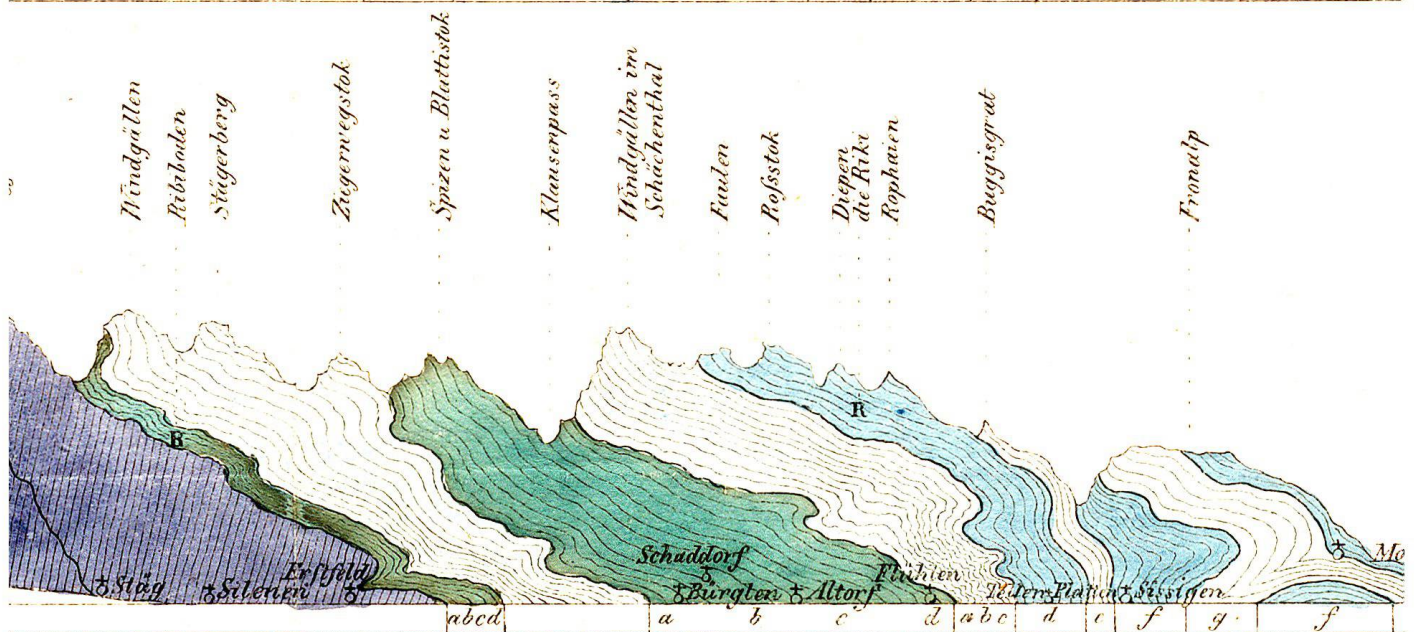 Windgällen
Ribiboden
Stägerberg
Zugerwegstok
Spizen u Blattistok
Klausenpass
Windgällen im
Schächenthal
Faulen
Roſsstok
Diepen
die Riki
Rophaien
Buggisgrat
Fronalp
R
R
Schaddorf
Stäg
Silenen
Erstfeld
Bürglen
Altorf
Flühlen
Sissigen
Mo
a b c d
a b c d
a b c
d
e
f
g
f